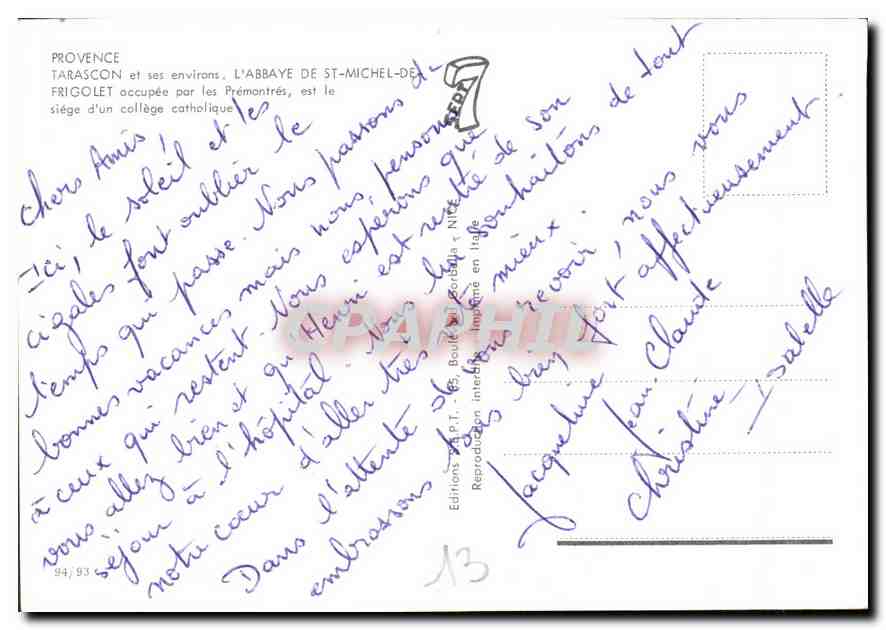 PROVENCE
TARASCON et ses environs. L'ABBAYE DE ST-MICHEL-DE
FRIGOLET occupée par les Prémontrés, est le
siége d'un collège catholique
7
SEPT
Chers Amis,
Ici, le soleil et les
cigales font oublier le
temps qui passe. Nous passons de
bonnes vacances mais nous pensons
à ceux qui restent. Nous espérons que
vous allez bien et qu'Henri est rentré de son
séjour à l'hôpital. Nous lui souhaitons de tout
notre cœur d'aller très vite mieux.
Dans l'attente de vous revoir, nous vous
embrassons tous bien fort affectueusement
Jacqueline
Jean-Claude
Christine
Isabelle
Reproduction interdite Imprimé en Italie
94/93
13
CPAPHIL